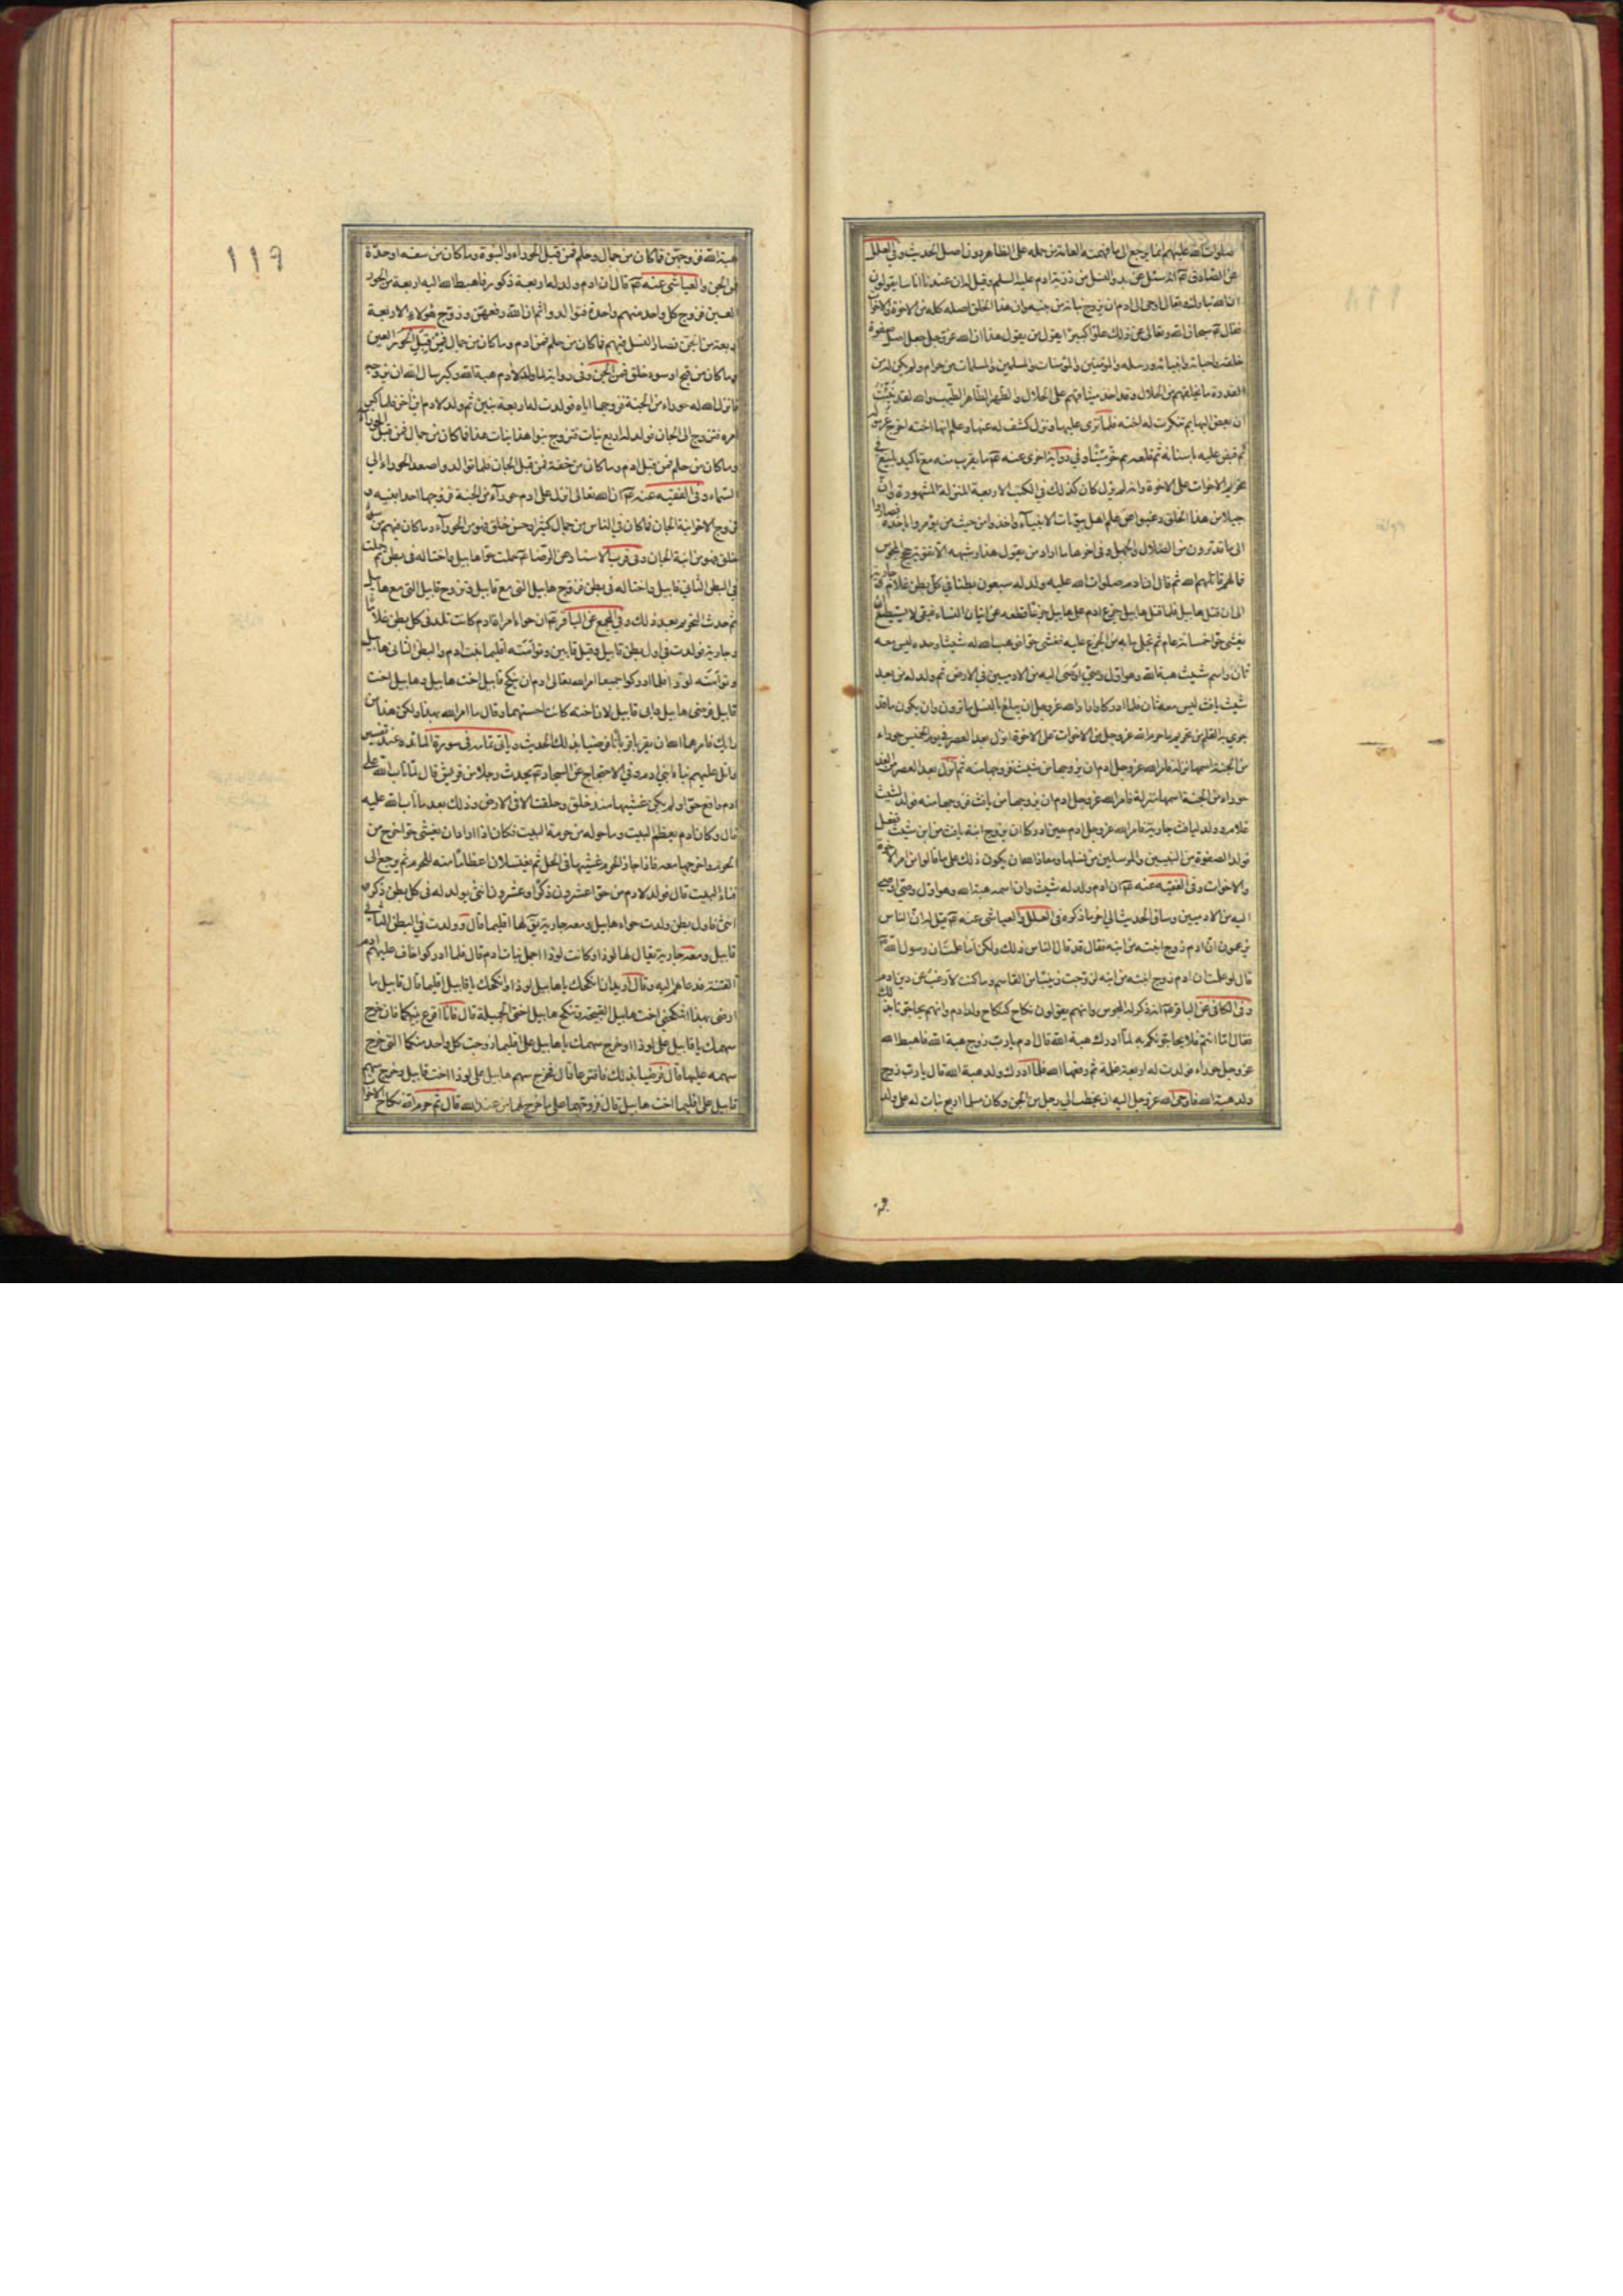 صلوات الله عليهم انما يرجع الى ما فهمته العامة من حمله على الظاهر دون اصل الحديث وفي العلل
عن الصادق عم انه سئل عن بدو النسل من ذرية ادم عليه السلم وقيل له ان عندنا اناسا يقولون
ان الله تبارك وتعالى اوحى الى ادم ان يزوج بناته من بنيه وان هذا الخلق اصله كله من الاخوة والاخوات
فقال عم سبحان الله وتعالى عن ذلك علوا كبيرا يقول من يقول هذا ان الله عز وجل جعل اصل صفوة
خلقه واحبائه وانبيائه ورسله والمؤمنين والمؤمنات والمسلمين والمسلمات من حرام ولم يكن له من
القدرة ما يخلقهم من الحلال وقد اخذ ميثاقهم على الحلال والطهر الطاهر الطيب والله لقد نبئت
ان بعض البهايم تنكرت له اخته فلما نزى عليها ونزل كشف له عنها وعلم انها اخته اخرج غرموله
ثم قبض عليه باسنانه ثم قلعه ثم خر ميتا وفي رواية اخرى عنه عم ما يقرب منه مع تاكيد بليغ في
تحريم الاخوات على الاخوة وانه لم يزل كان كذلك في الكتب الاربعة المنزلة المشهورة وان
جيلا من هذا الخلق رغبوا عن علم اهل بيوتات الانبياء واخذوا من حيث لم يؤمروا باخذه فصاروا
الى ما قد ترون من الضلال والجهل وفي اخرها ما اراد من يقول هذا وشبهه الا تقوية حجج المجوس
فما لهم قاتلهم الله ثم قال ان ادم صلوات الله عليه ولد له سبعون بطنا في كل بطن غلام وجارية
الى ان قتل هابيل فلما قتل هابيل جزع ادم على هابيل جزعا قطعه عن اتيان النساء فبقى لا يستطيع ان
يغشى حوا خمسمائة عام ثم تجلى ما به من الجزع عليه فغشى حوا فوهب الله له شيثا وحده ليس معه
ثان واسم شيث هبة الله وهو اول وصي اوصى اليه من الادميين في الارض ثم ولد له من بعد
شيث يافث ليس معه ثان فلما ادركا واراد الله عز وجل ان يبلغ بالنسل ما ترون وان يكون ما قد
جرى به القلم من تحريم ما حرم الله عز وجل من الاخوات على الاخوة انزل بعد العصر في يوم الخميس حوراء
من الجنة اسمها نزلة فامر الله عز وجل ادم ان يزوجها من شيث فزوجها منه ثم انزل بعد العصر من الغد
حوراء من الجنة اسمها منزلة فامر الله عز وجل ادم ان يزوجها من يافث فزوجها منه فولد لشيث
غلام وولد ليافث جارية فامر الله عز وجل ادم حين ادركا ان يزوج ابنة يافث من ابن شيث ففعل
فولد الصفوة من النبيين والمرسلين من نسلهما ومعاذ الله ان يكون ذلك على ما قالوا من امر الاخوة
والاخوات وفي الفقيه عنه عم ان ادم ولد له شيث وان اسمه هبة الله وهو اول وصي اوصى
اليه من الادميين وساق الحديث الى اخر ما ذكره في العلل والعياشي عنه عم قيل له ان الناس
يزعمون ان ادم زوج ابنته من ابنه فقال قد قال الناس ذلك ولكن اما علمت ان رسول الله ص
قال لو علمت ان ادم زوج ابنته من ابنه لزوجت زينب من القاسم وما كنت لارغب عن دين ادم
وفي الكافي عن الباقر عم انه ذكر له المجوس وانهم يقولون نكاح كنكاح ولد ادم وانهم يحاجونا بذلك
فقال اما انتم فلا يحاجونكم به لما ادرك هبة الله قال ادم يا رب زوج هبة الله فاهبط الله
عز وجل حوراء فولدت له اربعة غلمة ثم رفعها الله فلما ادرك ولد هبة الله قال يا رب زوج
ولد هبة الله فاوحى الله عز وجل اليه ان يخطب الى رجل من الجن وكان مسلما اربع بنات له على ولد
١١٩
هبة الله فزوجهن فما كان من جمال وحلم فمن قبل الحوراء والنبوة وما كان من سفه او حدة
فمن الجن والعياشي عنه عم قال ان ادم ولد له اربعة ذكور فاهبط الله اليه اربعة من الحور
العين فزوج كل واحد منهم واحدة فتوالدوا ثم ان الله رفعهن وزوج هؤلاء الاربعة
اربعة من الجن فصار النسل فيهم فما كان من حلم فمن ادم وما كان من جمال فمن قبل الحور العين
وما كان من قبح او سوء خلق فمن الجن وفي رواية لما ولد لادم هبة الله وكبر سال الله ان يزوجه
فانزل الله له حوراء من الجنة فزوجها اياه فولدت له اربعة بنين ثم ولد لادم ابن اخر فلما كبر
امره فتزوج الى الجان فولد له اربع بنات فتزوج بنوا هذا بنات هذا فما كان من جمال فمن قبل الحوراء
وما كان من حلم فمن قبل ادم وما كان من خفة فمن قبل الجان فلما توالدوا صعد الحوراء الى
السماء وفي الفقيه عنه عم ان الله تعالى انزل على ادم حوراء من الجنة فزوجها احد ابنيه و
تزوج الاخر ابنة الجان فما كان في الناس من جمال كثير او حسن خلق فهو من الحوراء وما كان فيهم من سوء
خلق فهو من ابنة الجان وفي قرب الاسناد عن الرضا عم حملت حوا هابيل واختا له في بطن ثم حملت
في البطن الثاني قابيل واختا له في بطن فزوج هابيل التي مع قابيل وتزوج قابيل التي مع هابيل
ثم حدث التحريم بعد ذلك وفي المجمع عن الباقر عم ان حواء امراة ادم كانت تلد في كل بطن غلاما
وجارية فولدت في اول بطن قابيل وقيل قابين وتوأمته اقليما بنت ادم والبطن الثاني هابيل
وتوأمته لوزا فلما ادركوا جميعا امر الله تعالى ادم ان ينكح قابيل اخت هابيل وهابيل اخت
قابيل فرضى هابيل وابى قابيل لان اخته كانت احسنهما وقال ما امر الله بهذا ولكن هذا من
رايك فامرهما الله ان يقربا قربانا فرضيا بذلك الحديث وياتي تمامه في سورة المائدة عند تفسير
واتل عليهم نبأ ابني ادم وفي الاحتجاج عن السجاد عم يحدث رجلا من قريش قال لما تاب الله على
ادم واقع حوا ولم يكن غشيها منذ خلق وخلقت الا في الارض وذلك بعد ما تاب الله عليه
قال وكان ادم يعظم البيت وما حوله من حرمة البيت فكان اذا اراد ان يغشى حوا خرج من
الحرم واخرجها معه فاذا جاز الحرم غشيها في الحل ثم يغتسلان اعظاما منه للحرم ثم يرجع الى
فناء البيت قال فولد لادم من حوا عشرون ذكرا وعشرون انثى يولد له في كل بطن ذكر و
انثى فاول بطن ولدت حواء هابيل ومعه جارية يقال لها اقليما قال وولدت في البطن الثاني
قابيل ومعه جارية يقال لها لوزا وكانت لوزا اجمل بنات ادم قال فلما ادركوا خاف عليهم ادم
الفتنة فدعاهم اليه وقال اريد ان انكحك يا هابيل لوزا وانكحك يا قابيل اقليما قال قابيل ما
ارضى بهذا اتنكحني اخت هابيل القبيحة وتنكح هابيل اختي الجميلة قال فانا اقرع بينكما فان خرج
سهمك يا قابيل على لوزا وخرج سهمك يا هابيل على اقليما زوجت كل واحد منكما التي خرج
سهمه عليها قال فرضيا بذلك فاقترعا قال فخرج سهم هابيل على لوزا اخت قابيل وخرج سهم
قابيل على اقليما اخت هابيل قال فزوجهما على ما خرج لهما من عند الله قال ثم حرم الله نكاح الاخوات